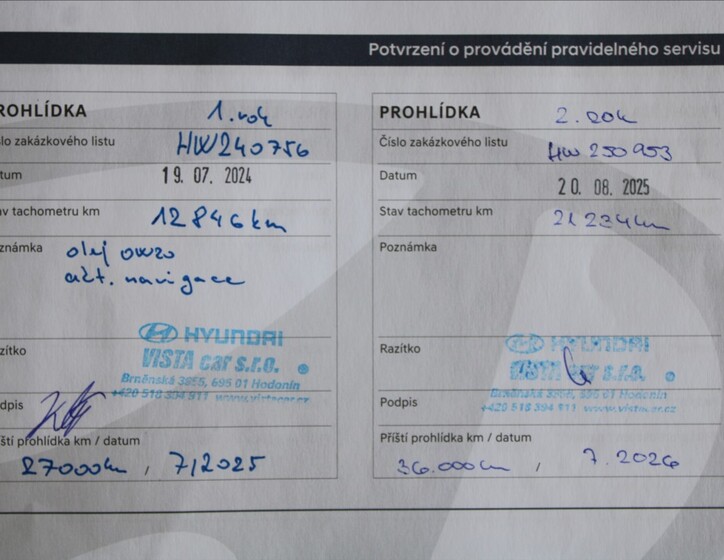 Potvrzení o provádění pravidelného servisu
ROHLÍDKA 1. rok
lo zakázkového listu HW240756
tum 19. 07. 2024
av tachometru km 12846km
známka olej 0W20
akt. navigace
zítko HYUNDAI
VISTA car s.r.o.
Brněnská 3965, 695 01 Hodonín
+420 518 394 911 www.vistacar.cz
dpis
ští prohlídka km / datum
27000km , 7/2025
PROHLÍDKA 2. rok
Číslo zakázkového listu HW 250953
Datum 20. 08. 2025
Stav tachometru km 21 234km
Poznámka
Razítko HYUNDAI
VISTA car s.r.o.
Brněnská 3965, 695 01 Hodonín
+420 518 394 911 www.vistacar.cz
Podpis
Příští prohlídka km / datum
36.000km / 7.2026